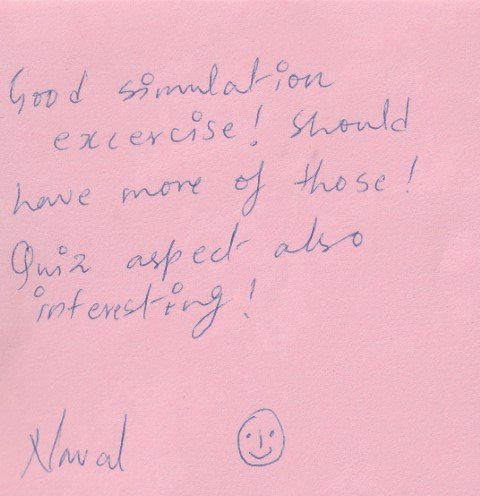 Good simulation
excercise! Should
have more of those!
Quiz aspect also
interesting!
Naval